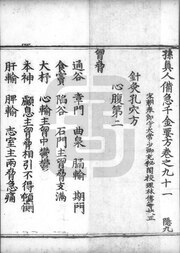 孫真人備急千金要方卷之九十一 隱九
宋朝奉郎守太常少卿充秘閣校理林億等校正
針灸孔穴方
心腹第二
胷脅
通谷 章門 曲泉 膈輸 期門
食竇 陷谷 石門主胷脅支滿
大杼 心輸主胷中鬱鬱
本神 顱息主胷脅相引不得傾側
肝輸 脾輸 志室主兩脅急痛